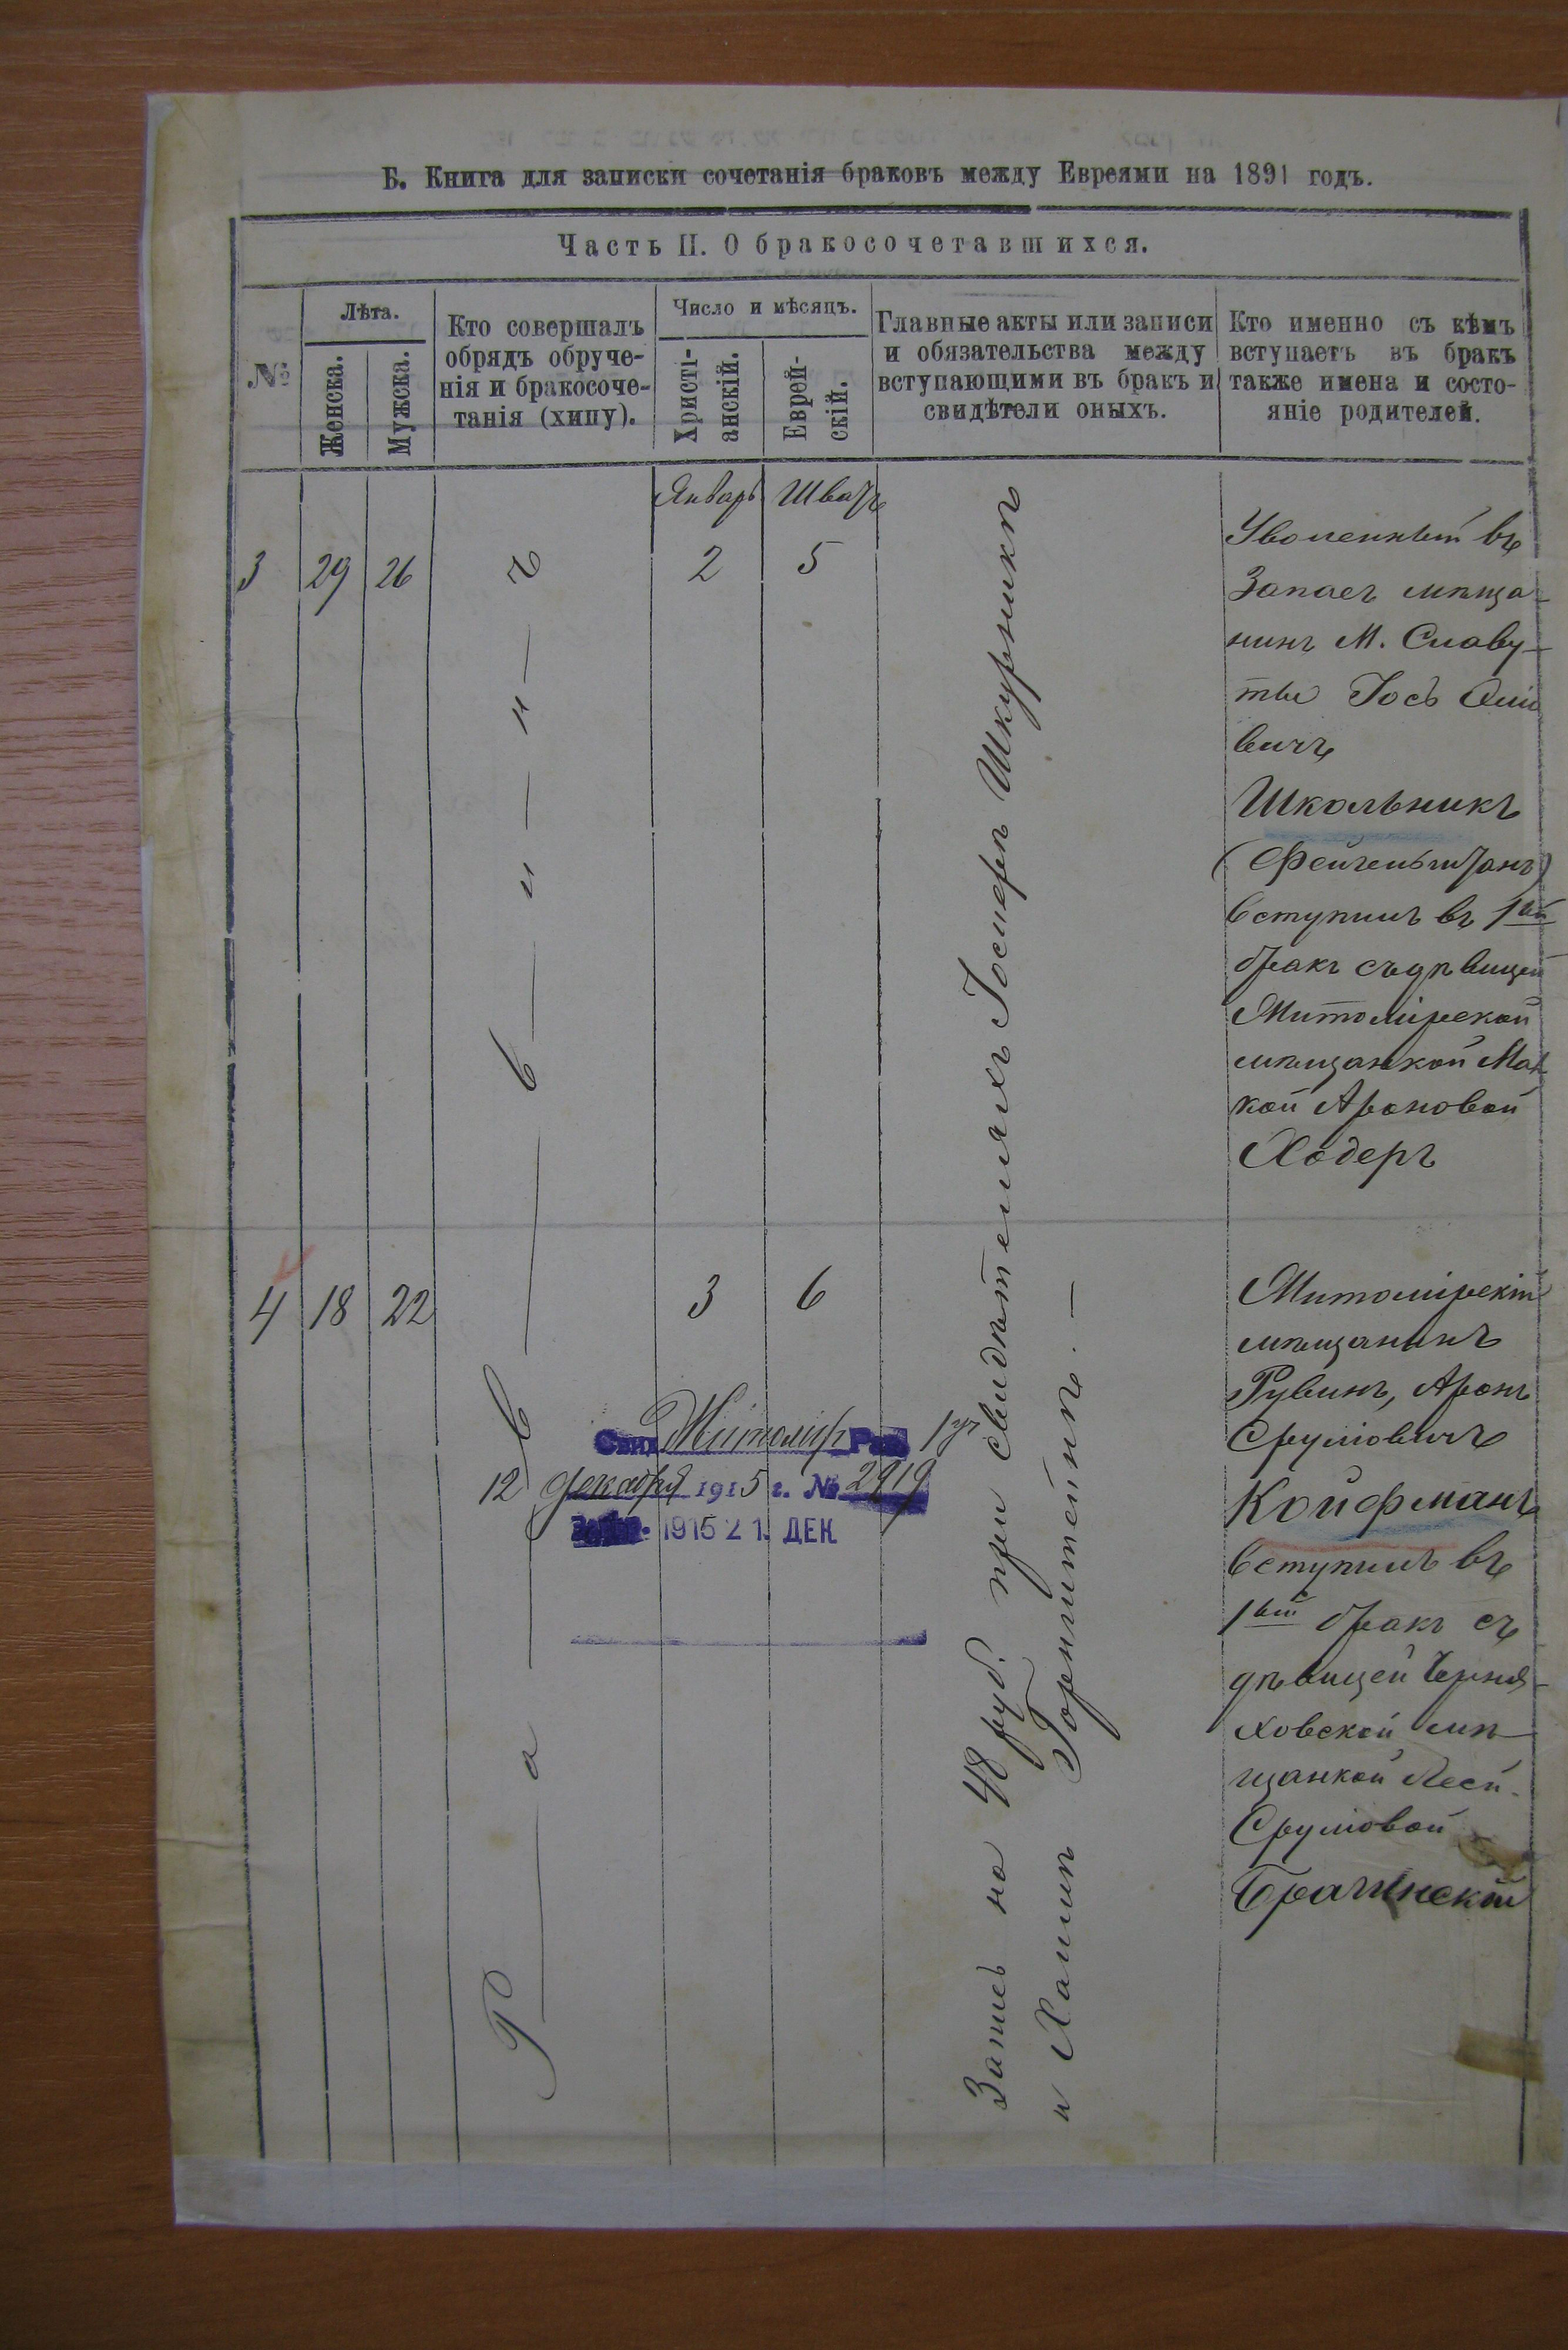 Б. Книга для записки сочетанія браковъ между Евреями на 1891 годъ.
Часть II. О бракосочетавшихся.
№
Лѣта.
Женска.
Мужска.
Кто совершалъ
обрядъ обруче-
нія и бракосоче-
танія (хипу).
Число и мѣсяцъ.
Христі-
анскій.
Еврей-
скій.
Главные акты или записи
и обязательства между
вступающими въ бракъ и
свидѣтели оныхъ.
Кто именно съ кѣмъ
вступаетъ въ бракъ
также имена и состо-
яніе родителей.
Январь Шватъ
3 29 26 2 5
Раввинъ
Запись на 48 руб. при свидѣтеляхъ Іосперѣ Шкурникѣ
и Хаимѣ Горнштейнѣ. —
Уволенный въ
Запасъ мѣща-
нинъ М. Славу-
ты Іось
вичъ
Школьникъ
(Фейгельштанъ)
вступилъ въ 1ый
бракъ съ дѣвицей
Житомірской
мѣщанкой Мал
кой Ароновой
Ходеръ
4 18 22 3 6
Житомірскій
мѣщанинъ
Рувинъ, Аронъ
Сруліовичъ
Койфманъ
вступилъ въ
1вый бракъ съ
дѣвицей Черня-
ховской мѣ-
щанкой Лесй
Сруліовой
Брагинской
Житомір Рав
12 декабря 1915 г. № 2919
1915 21. ДЕК